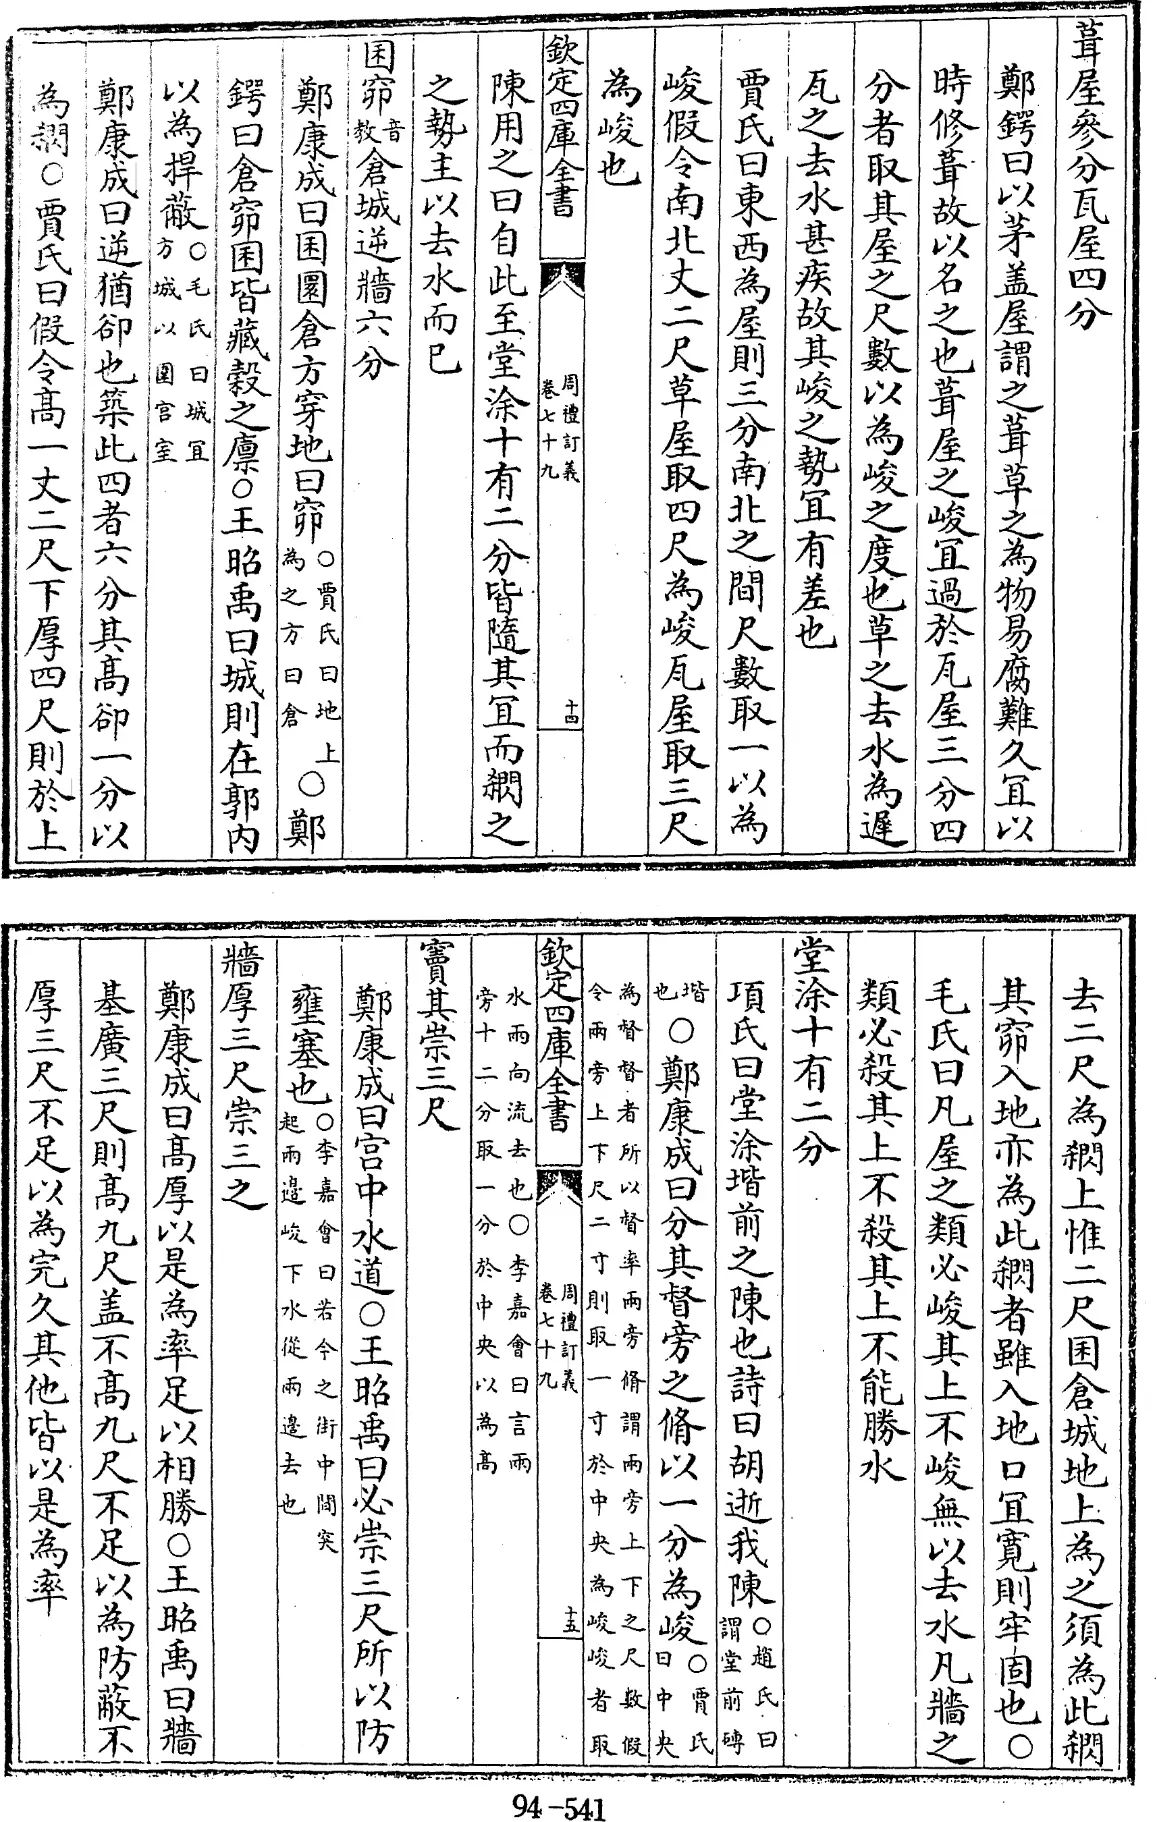 葺屋參分瓦屋四分
鄭鍔曰以茅盖屋謂之葺草之為物易腐難久冝以
時修葺故以名之也葺屋之峻冝過於瓦屋三分四
分者取其屋之尺數以為峻之度也草之去水為遲
瓦之去水甚疾故其峻之勢冝有差也
賈氏曰東西為屋則三分南北之間尺數取一以為
峻假令南北丈二尺草屋取四尺為峻瓦屋取三尺
為峻也
欽定四庫全書
周禮訂義
卷七十九
十四
陳用之曰自此至堂涂十有二分皆隨其冝而䦃之
之勢主以去水而已
囷窌音教倉城逆牆六分
鄭康成曰囷圜倉方穿地曰窌○賈氏曰地上為之方曰倉○鄭
鍔曰倉窌囷皆藏穀之廪○王昭禹曰城則在郭内
以為捍蔽○毛氏曰城冝方城以圍宫室
鄭康成曰逆猶卻也築此四者六分其髙卻一分以
為䦃○賈氏曰假令髙一丈二尺下厚四尺則於上
去二尺為䦃上惟二尺囷倉城地上為之須為此䦃
其窌入地亦為此䦃者雖入地口冝寛則牢固也○
毛氏曰凡屋之類必峻其上不峻無以去水凡牆之
類必殺其上不殺其上不能勝水
堂涂十有二分
項氏曰堂涂堦前之陳也詩曰胡逝我陳○趙氏曰謂堂前磚
堦也○鄭康成曰分其督旁之脩以一分為峻○賈氏曰中央
為督督者所以督率兩旁脩謂兩旁上下之尺數假
令兩旁上下尺二寸則取一寸於中央為峻峻者取
欽定四庫全書
周禮訂義
卷七十九
十五
水兩向流去也○李嘉會曰言兩
旁十二分取一分於中央以為髙
竇其崇三尺
鄭康成曰宫中水道○王昭禹曰必崇三尺所以防
壅塞也○李嘉會曰若今之街中間突起兩邉峻下水從兩邉去也
牆厚三尺崇三之
鄭康成曰髙厚以是為率足以相勝○王昭禹曰牆
基廣三尺則髙九尺盖不髙九尺不足以為防蔽不
厚三尺不足以為完久其他皆以是為率
94-541